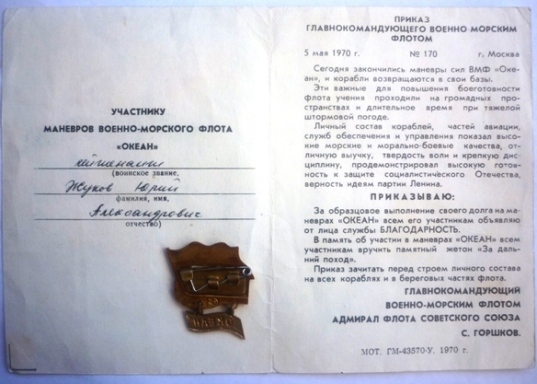 УЧАСТНИКУ
МАНЕВРОВ ВОЕННО-МОРСКОГО ФЛОТА
«ОКЕАН»
лейтенант
(воинское звание,
Жуков Юрий
фамилия, имя,
Александрович
отчество)
ПРИКАЗ
ГЛАВНОКОМАНДУЮЩЕГО ВОЕННО МОРСКИМ
ФЛОТОМ
5 мая 1970 г. № 170 г. Москва
Сегодня закончились маневры сил ВМФ «Оке-
ан», и корабли возвращаются в свои базы.
Эти важные для повышения боеготовности
флота учения проходили на громадных про-
странствах и длительное время при тяжелой
штормовой погоде.
Личный состав кораблей, частей авиации,
служб обеспечения и управления показал высо-
кие морские и морально-боевые качества, от-
личную выучку, твердость воли и крепкую дис-
циплину, продемонстрировал высокую готов-
ность к защите социалистического Отечества,
верность идеям партии Ленина.
ПРИКАЗЫВАЮ:
За образцовое выполнение своего долга на ма-
неврах «ОКЕАН» всем его участникам объявляю
от лица службы БЛАГОДАРНОСТЬ.
В память об участии в маневрах «ОКЕАН» всем
участникам вручить памятный жетон «За даль-
ний поход».
Приказ зачитать перед строем личного состава
на всех кораблях и в береговых частях флота.
ГЛАВНОКОМАНДУЮЩИЙ
ВОЕННО-МОРСКИМ ФЛОТОМ
АДМИРАЛ ФЛОТА СОВЕТСКОГО СОЮЗА
С. ГОРШКОВ.
МОТ. ГМ-43570-У. 1970 г.